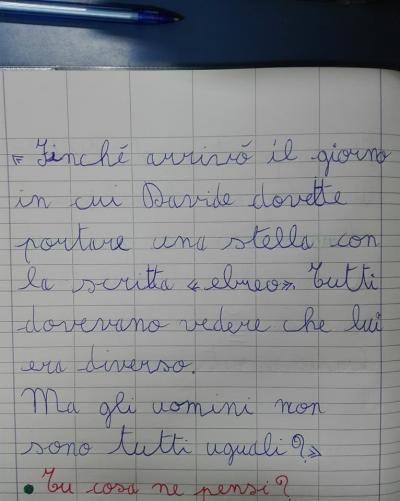 « Finché arrivò il giorno
in cui Davide dovette
portare una stella con
la scritta « ebreo». Tutti
dovevano vedere che lui
era diverso.
Ma gli uomini non
sono tutti uguali?»
• Tu cosa ne pensi?